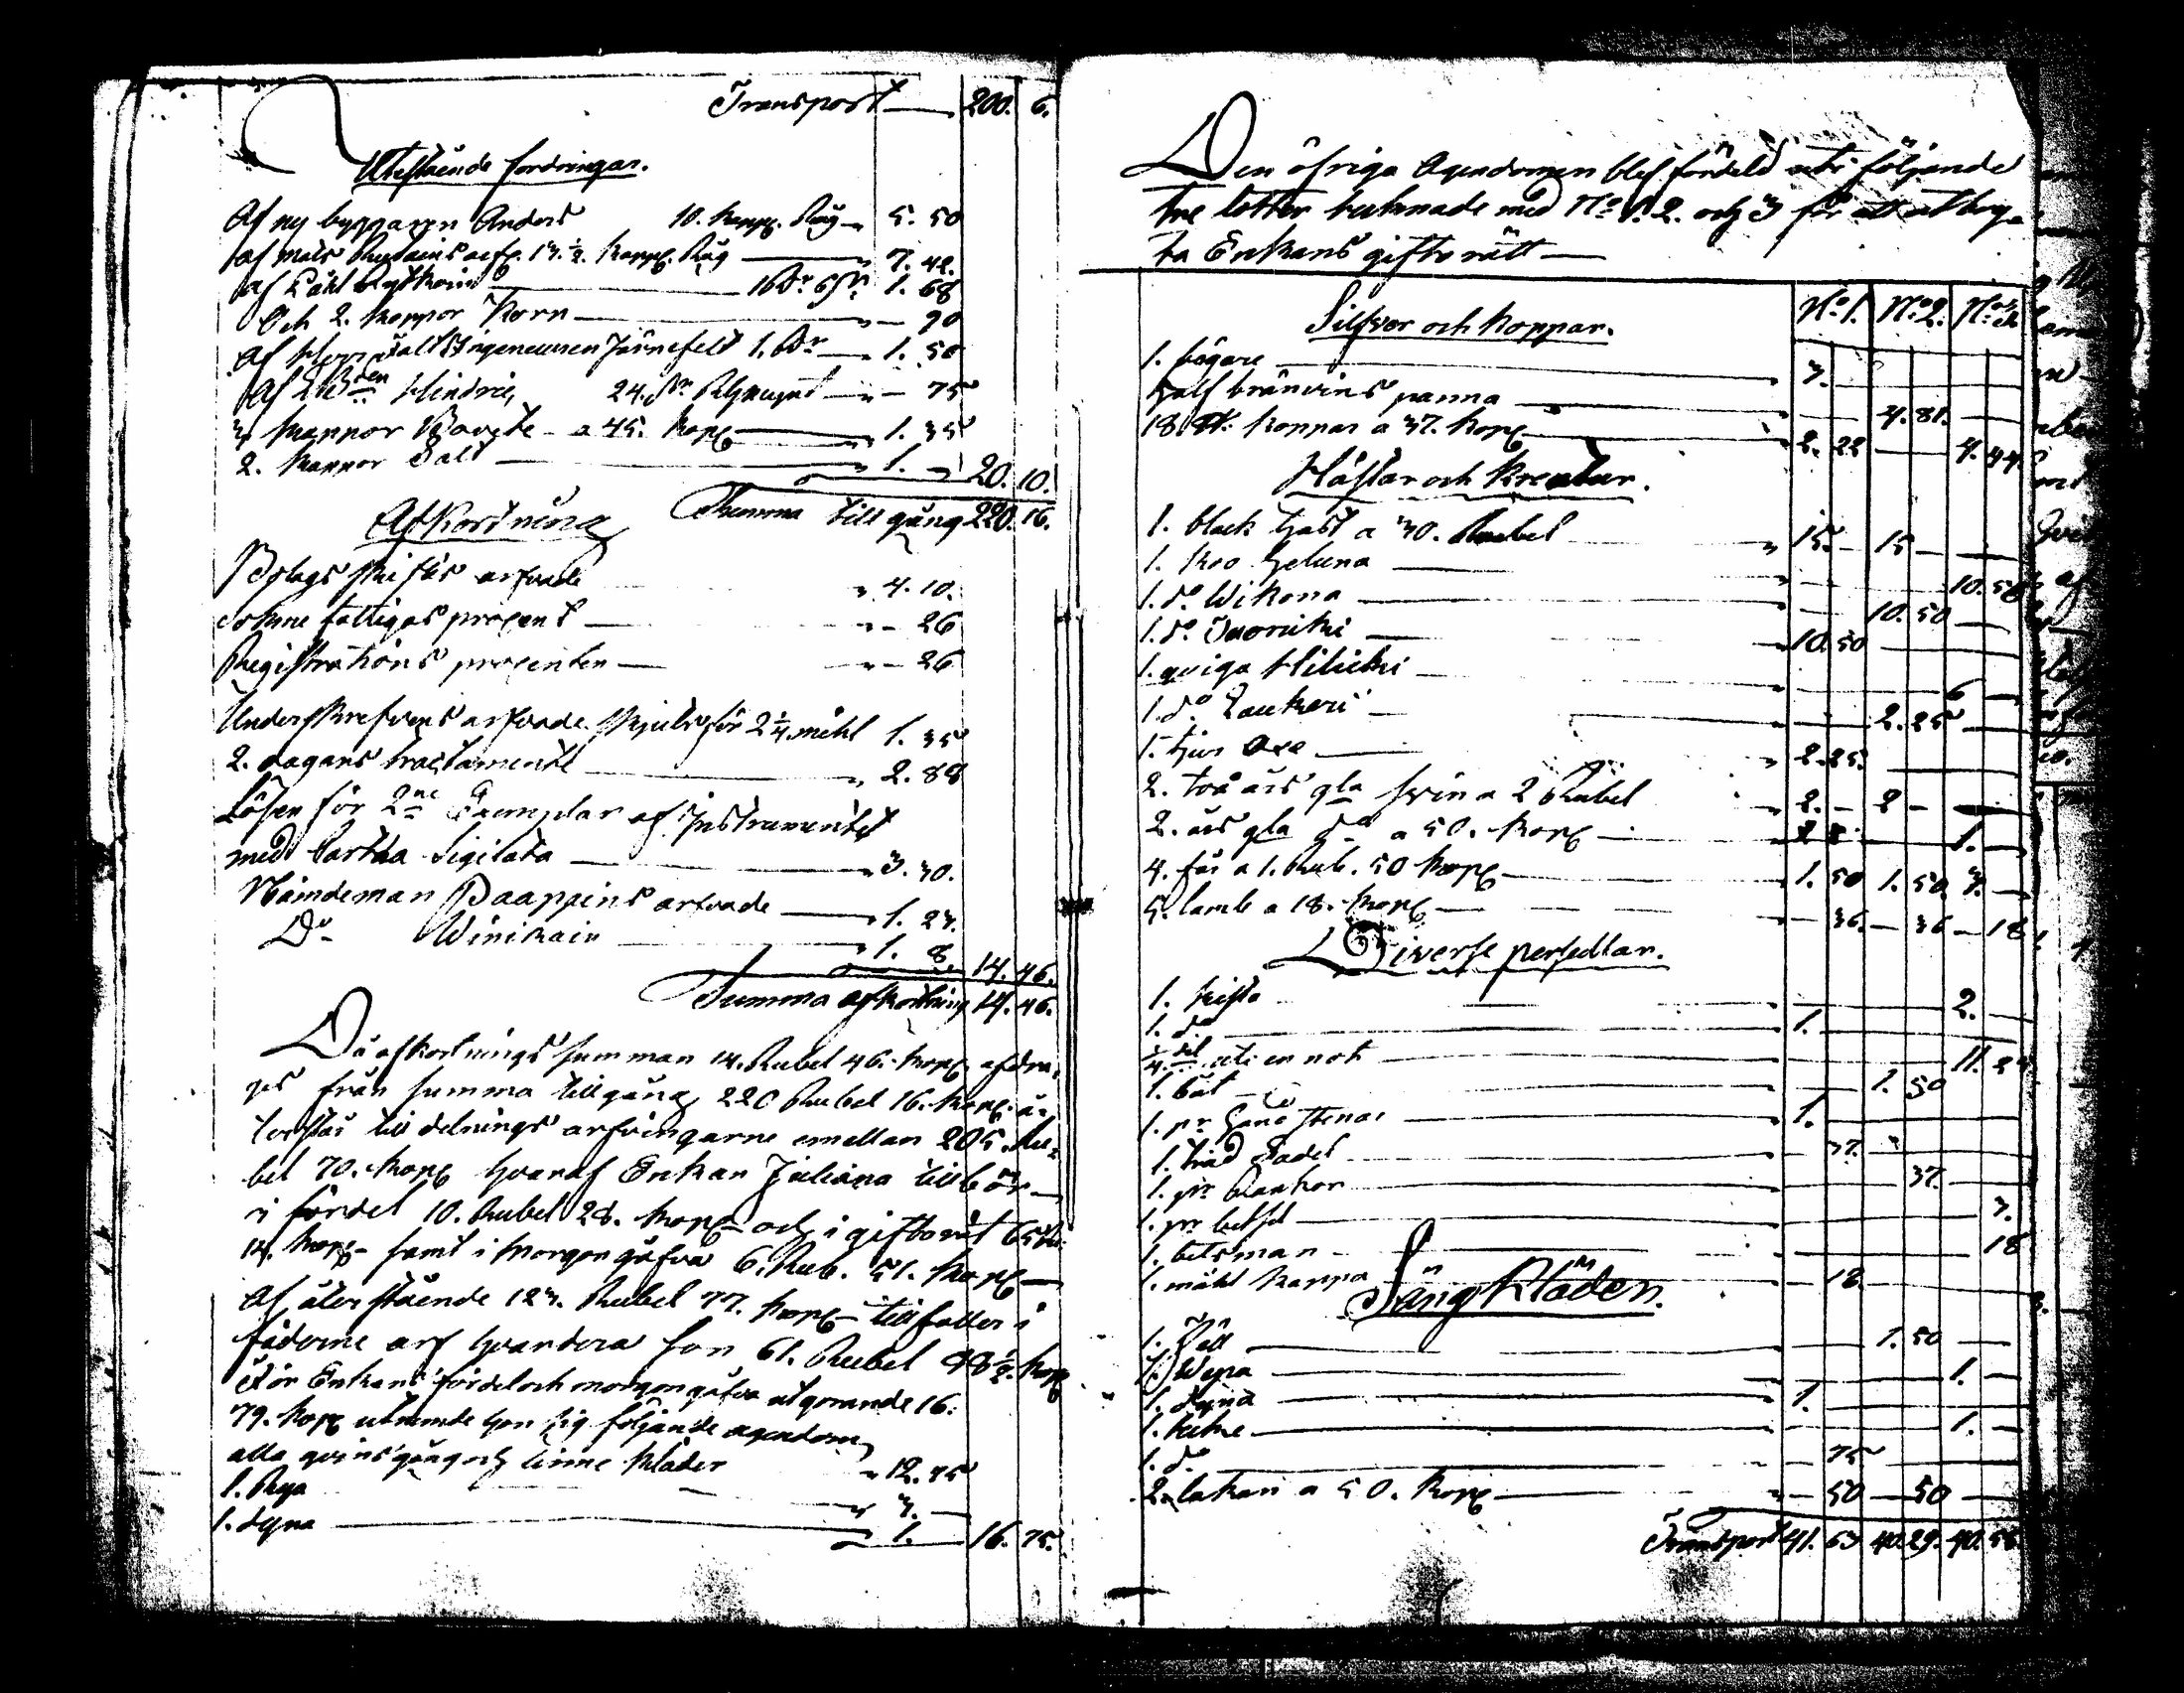 Transport — 200. 6.
Utestående fordringar.
Af ny byggaren Anders 10. kapp. Råg — 5. 50
af Mats arfv. 13 1/2 kapp Råg — 7. 42.
Af Påhl — 1. 68
Och 2. kappor Korn — " — 90
af Ingeneuren Järnefelt 1. — 1. 50
Af Hindric 24. — " — 75
3 kappor — a 45. kope — 1. 35
2. kappor Salt — 1. — 20. 10.
Summa till gång 220. 16.
Afkortning
Bolags skiftes arfvode " 4. 10.
Sokne fattigas procent — " — 26
Registrations procenten — " — 26
Underskrefvens arfvode skjuts för 2 1/4 mihl 1. 35
2. dagars tractamente — 2. 88
Lösen för 2ne Exemplar af Instrumentet
med Cartha Sigilata — 3. 30.
Nämdeman Paappins arfvode — 1. 23.
Do Winikain — 1. 8. 14. 46.
Summa afkortning 14. 46.
Då afkortnings summan 14. Rubel 46. kope afdra-
ges från summa tillgång 220 Rubel 16. kope å-
terstår till delnings arfvingarne emellan 205. Ru-
bel 70. kope hvaraf Enkan Juliana tillbör-
i fördel 10. Rubel 28. kope och i giftorät 65
14. kope samt i Morgongåfva 6. Rub. 51. kope —
Af återstående 123. Rubel 77. kope tillfaller i
fäderne arf hvardera son 61. Rubel 88 1/2 kop
För Enkans fördel och morgongåfva utgörande 16.
79. kope uttamde hon sig följande agendom
alla qvins gång och linne kläder " 12. 75
1. Rya " 3. —
1. dyna — 1. 16. 75.
Den öfriga Agendomen blef fördeld uti följande
tre lotter tecknade med No 1. 2. och 3 för att utbry-
ta Enkans giftorätt —
No 1. No 2. No 3.
Silfver och koppar.
1. bägare — 3.
half bränvins panna — 4. 81.
18. koppar a 37. kope — 2. 22 — 4. 44.
Hästar och Kreatur.
1. black häst a 30. Rubel — 15. — 15 —
1. koo Heluna — 10. 50
1. do Wikona — 10. 50
1. do — 10. 50
1. qviga — 6 —
1. do — 2. 25
1. tjur Oxe — 2. 25.
2. två års gla svin a 2 Rubel " 2. — 2 —
2. års gla do a 50. kope — 1. —
4. får a 1. Rub. 50 kope — 1. 50 1. 50. 3. —
5. lamb a 18. kope — 36. — 36 — 18
Diverse persedlar.
1. kista — 2. —
1. do — 1.
1/4 del uti en not — 11.
1. båt — 1. 50
1. pr stenar — 1.
1. 37.
1. pr 37.
1. pr betsel — 7.
1. betsman — 18
1. måhl kappa — 18
Säng Kläden.
1. Fäll — 1. 50
1. Wepa — 1. —
1. dyna — 1.
1. — 1.
1. do — 75
2. lakan a 50. kope — 50 — 50 —
Transport 41. 63 40. 29. 40. 58